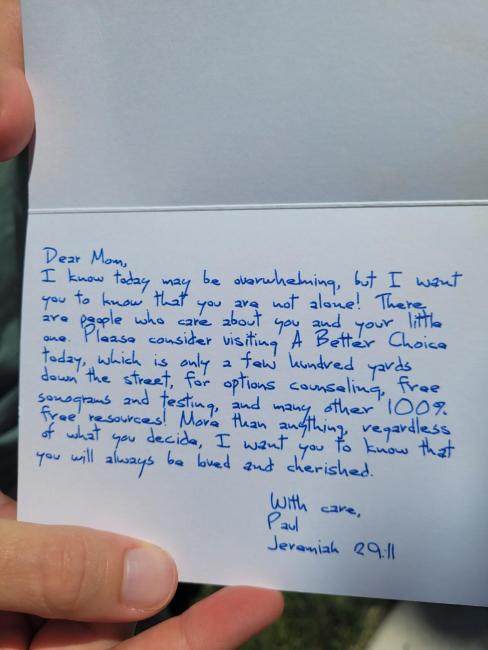 Dear Mom,
I know today may be overwhelming, but I want
you to know that you are not alone! There
are people who care about you and your little
one. Please consider visiting A Better Choice
today, which is only a few hundred yards
down the street, for options counseling, free
sonograms and testing, and many other 100%
free resources! More than anything, regardless
of what you decide, I want you to know that
you will always be loved and cherished.
With care,
Paul
Jeremiah 29:11